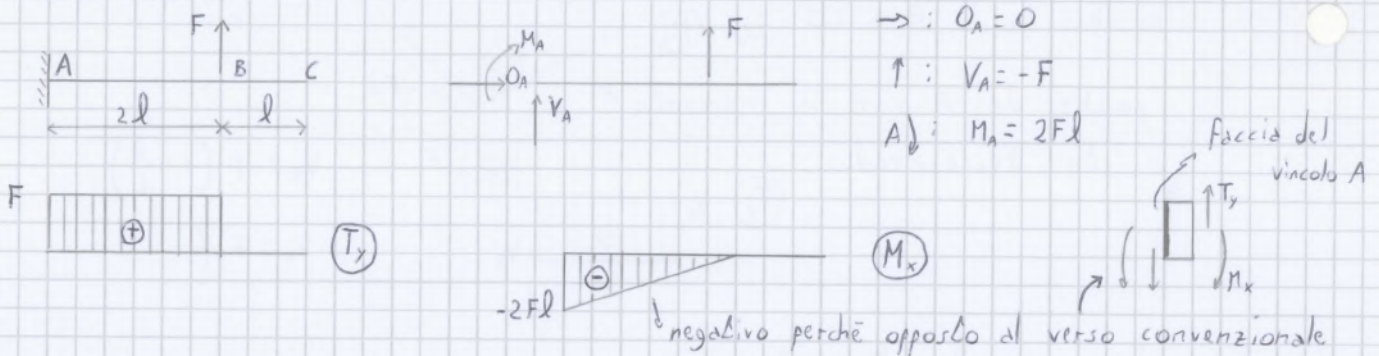 F
A B C
2l l
M_A
O_A
V_A
F
→ : O_A = 0
↑ : V_A = -F
A) : M_A = 2Fl
faccia del
vincolo A
F
+
T_y
-
-2Fl
M_x
T_y
M_x
negativo perchè opposto al verso convenzionale